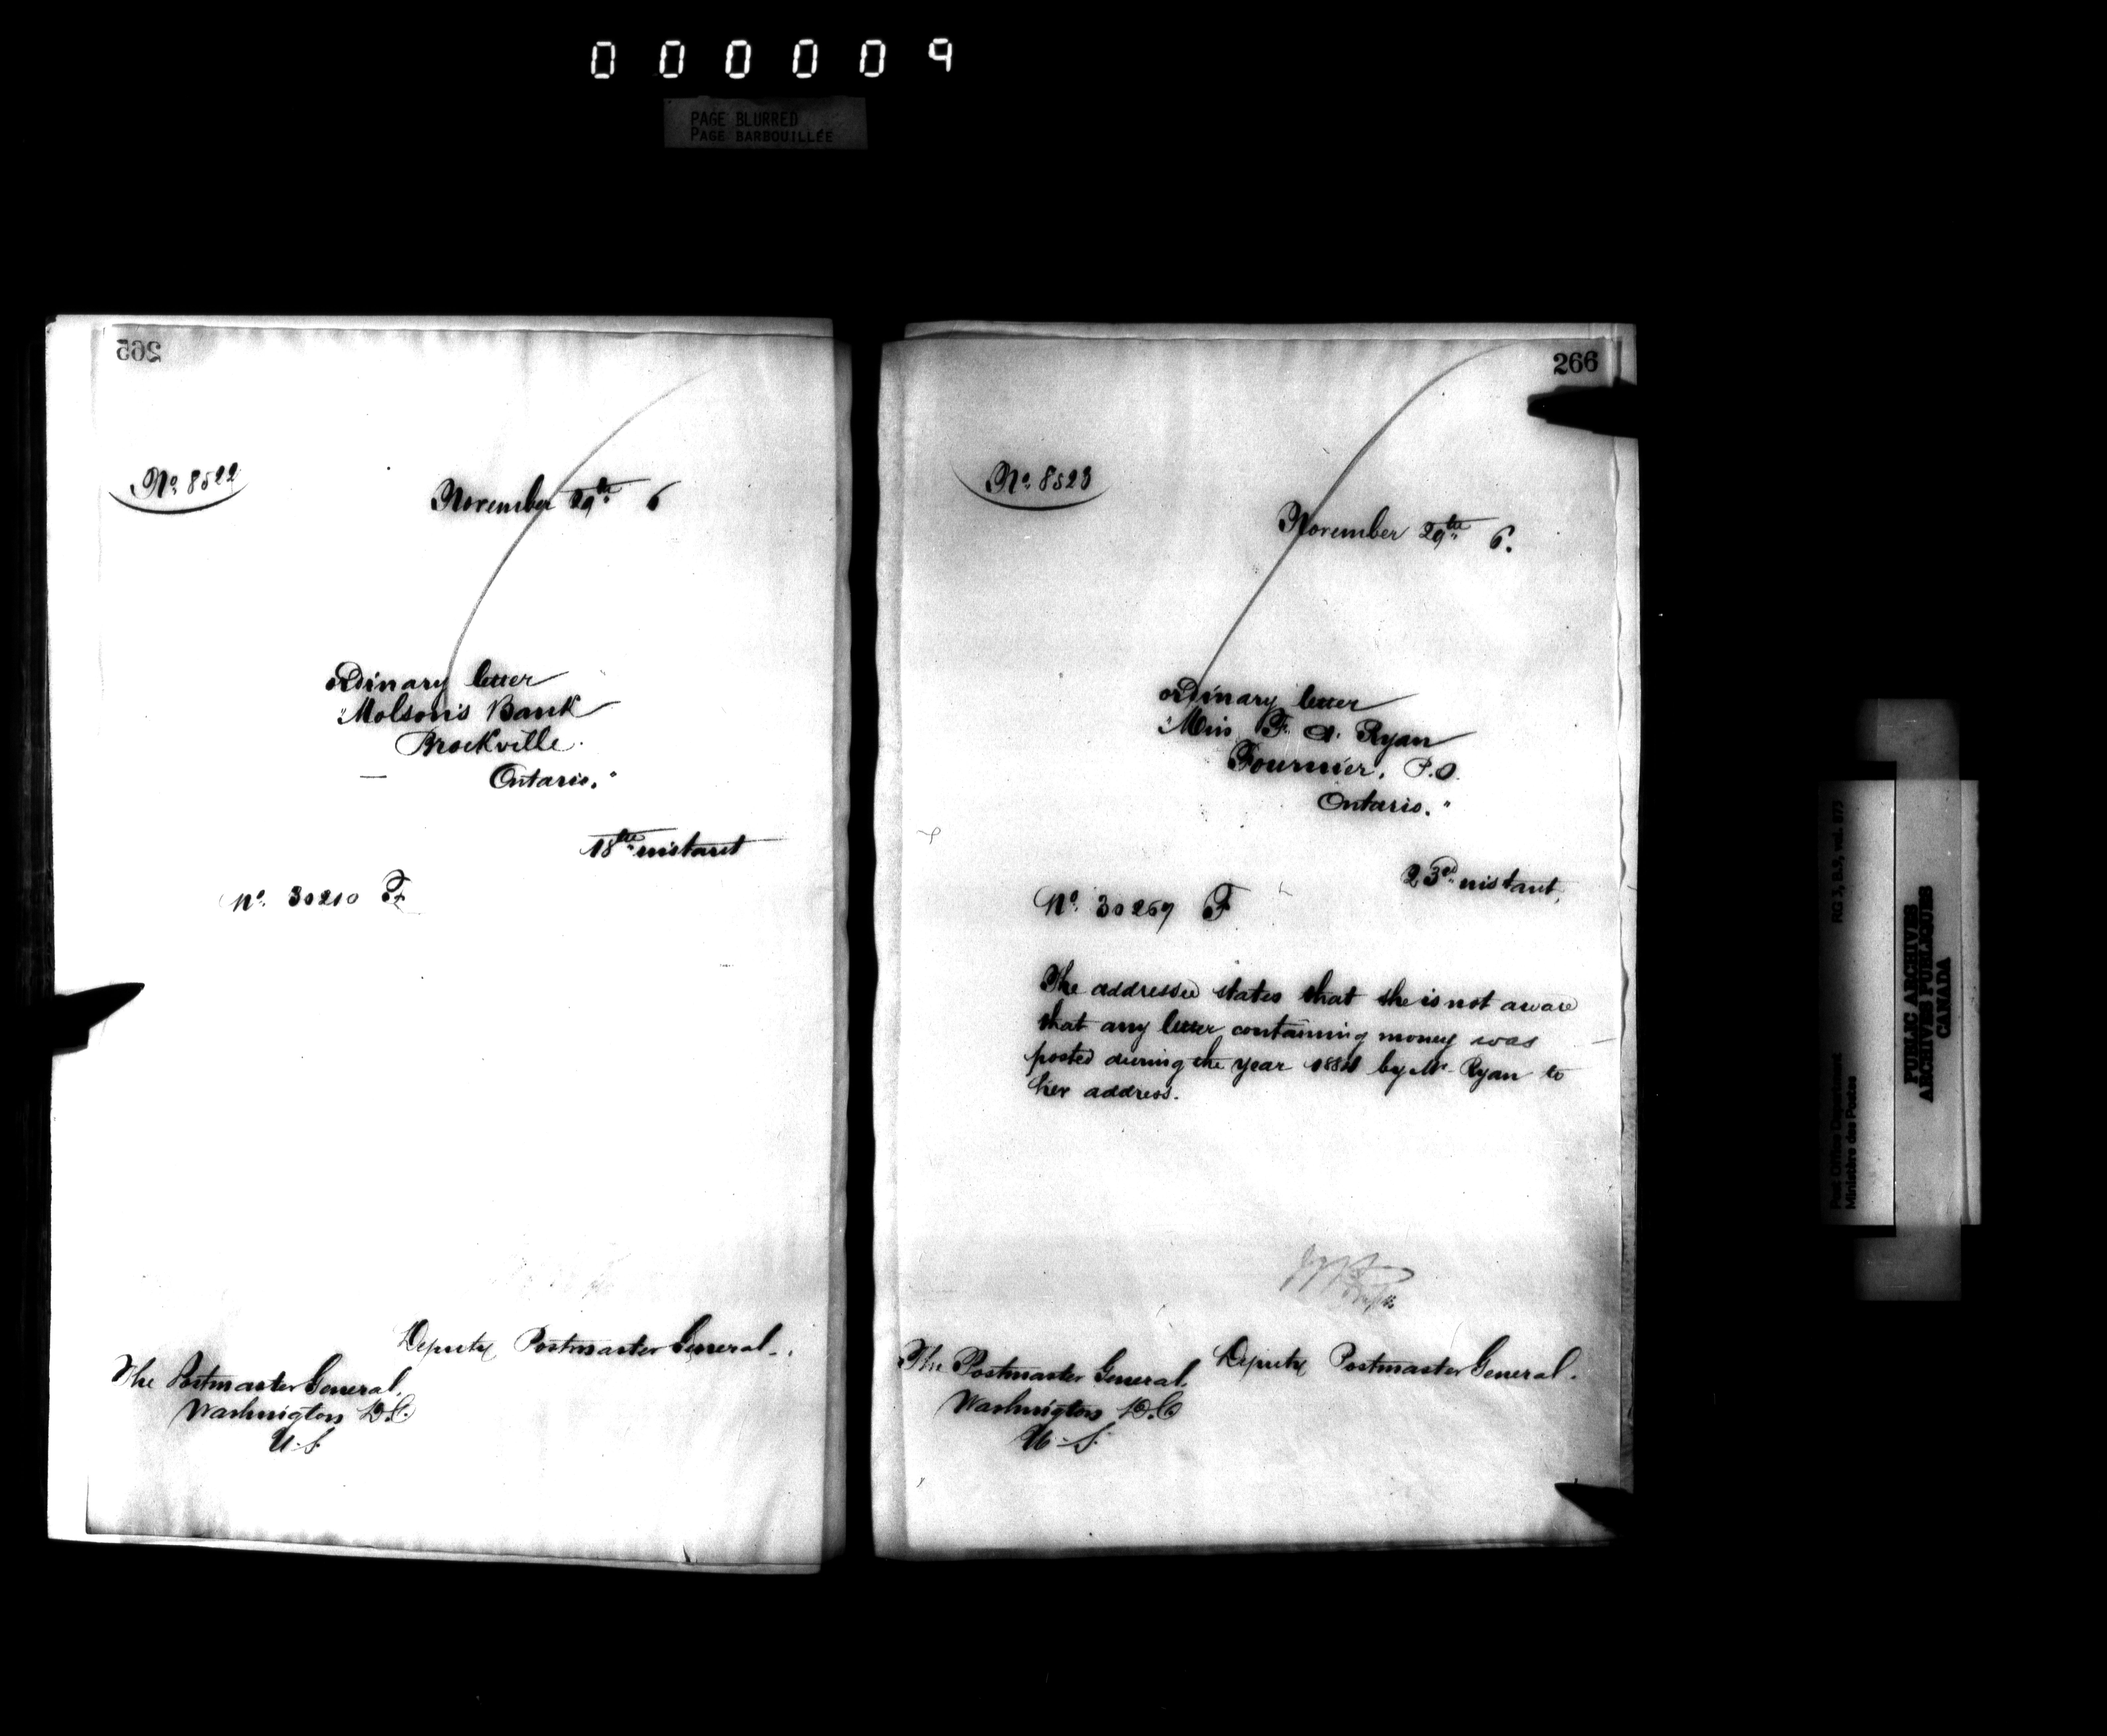 000009
PAGE BLURRED
PAGE BARBOUILLÉE
265
No. 8522
November 29th 6
ordinary letter
"Molson's Bank
Brockville.
Ontario."
18th instant
No. 30210 F
Deputy Postmaster General.
The Postmaster General,
Washington D.C.
U.S.
266
No. 8523
November 29th 6.
ordinary letter
"Miss F. A. Ryan
Fournier, P.O.
Ontario."
23rd instant,
No. 30267 F
The addressee states that she is not aware
that any letter containing money was
posted during the year 1884 by Mr. Ryan to
her address.
Deputy Postmaster General.
The Postmaster General,
Washington D.C.
U.S.
Post Office Department
Ministère des Postes
RG 3, B.9, vol. 873
PUBLIC ARCHIVES
ARCHIVES PUBLIQUES
CANADA